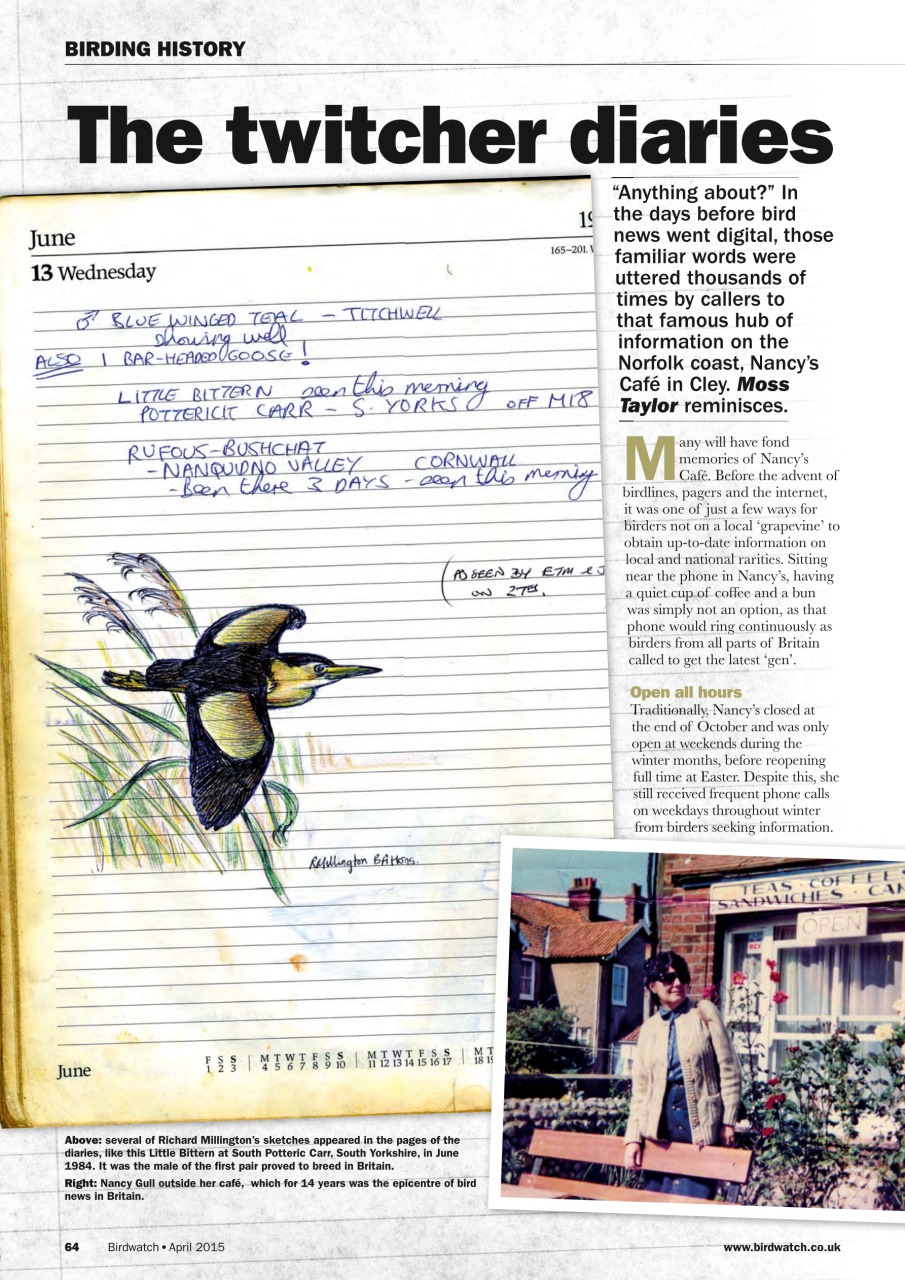 BIRDING HISTORY
The twitcher diaries
June
13 Wednesday
165–201.
♂ BLUE WINGED TEAL – TITCHWELL
showing well
ALSO 1 BAR-HEADED GOOSE!
LITTLE BITTERN seen this morning
POTTERICK CARR – S. YORKS OFF M18
RUFOUS-BUSHCHAT
– NANQUIDNO VALLEY CORNWALL
- Been there 3 DAYS – seen this morning
(AS SEEN BY ETM & J
ON 27TH.
June
F S S | M T W T F S S | M T W T F S S | M T
1 2 3 | 4 5 6 7 8 9 10 | 11 12 13 14 15 16 17 | 18 19
“Anything about?” In
the days before bird
news went digital, those
familiar words were
uttered thousands of
times by callers to
that famous hub of
information on the
Norfolk coast, Nancy’s
Café in Cley. Moss
Taylor reminisces.
Many will have fond
memories of Nancy’s
Café. Before the advent of
birdlines, pagers and the internet,
it was one of just a few ways for
birders not on a local ‘grapevine’ to
obtain up-to-date information on
local and national rarities. Sitting
near the phone in Nancy’s, having
a quiet cup of coffee and a bun
was simply not an option, as that
phone would ring continuously as
birders from all parts of Britain
called to get the latest ‘gen’.
Open all hours
Traditionally, Nancy’s closed at
the end of October and was only
open at weekends during the
winter months, before reopening
full time at Easter. Despite this, she
still received frequent phone calls
on weekdays throughout winter
from birders seeking information.
TEAS · COFFEES
SANDWICHES · CA
OPEN
Above: several of Richard Millington’s sketches appeared in the pages of the
diaries, like this Little Bittern at South Potteric Carr, South Yorkshire, in June
1984. It was the male of the first pair proved to breed in Britain.
Right: Nancy Gull outside her café, which for 14 years was the epicentre of bird
news in Britain.
64 Birdwatch • April 2015
www.birdwatch.co.uk